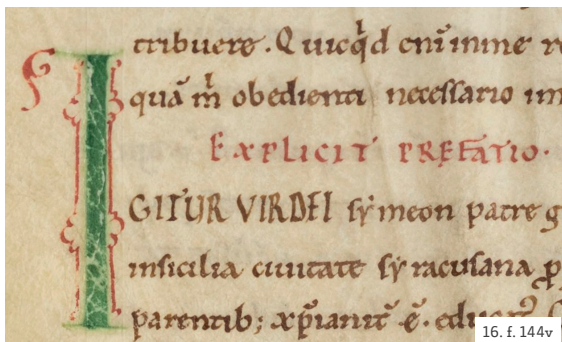 tribuere. Quicq̇d eni̅ mine r
quā m̊ obedienti necessario im
EXPLICIT PREFATIO.
IGITUR VIR DEI sẏmeon patre g
insicilia ciuitate sẏracusana ꝓ
parentib; xp̅ianit᷒ e̅. edu
16. f. 144v